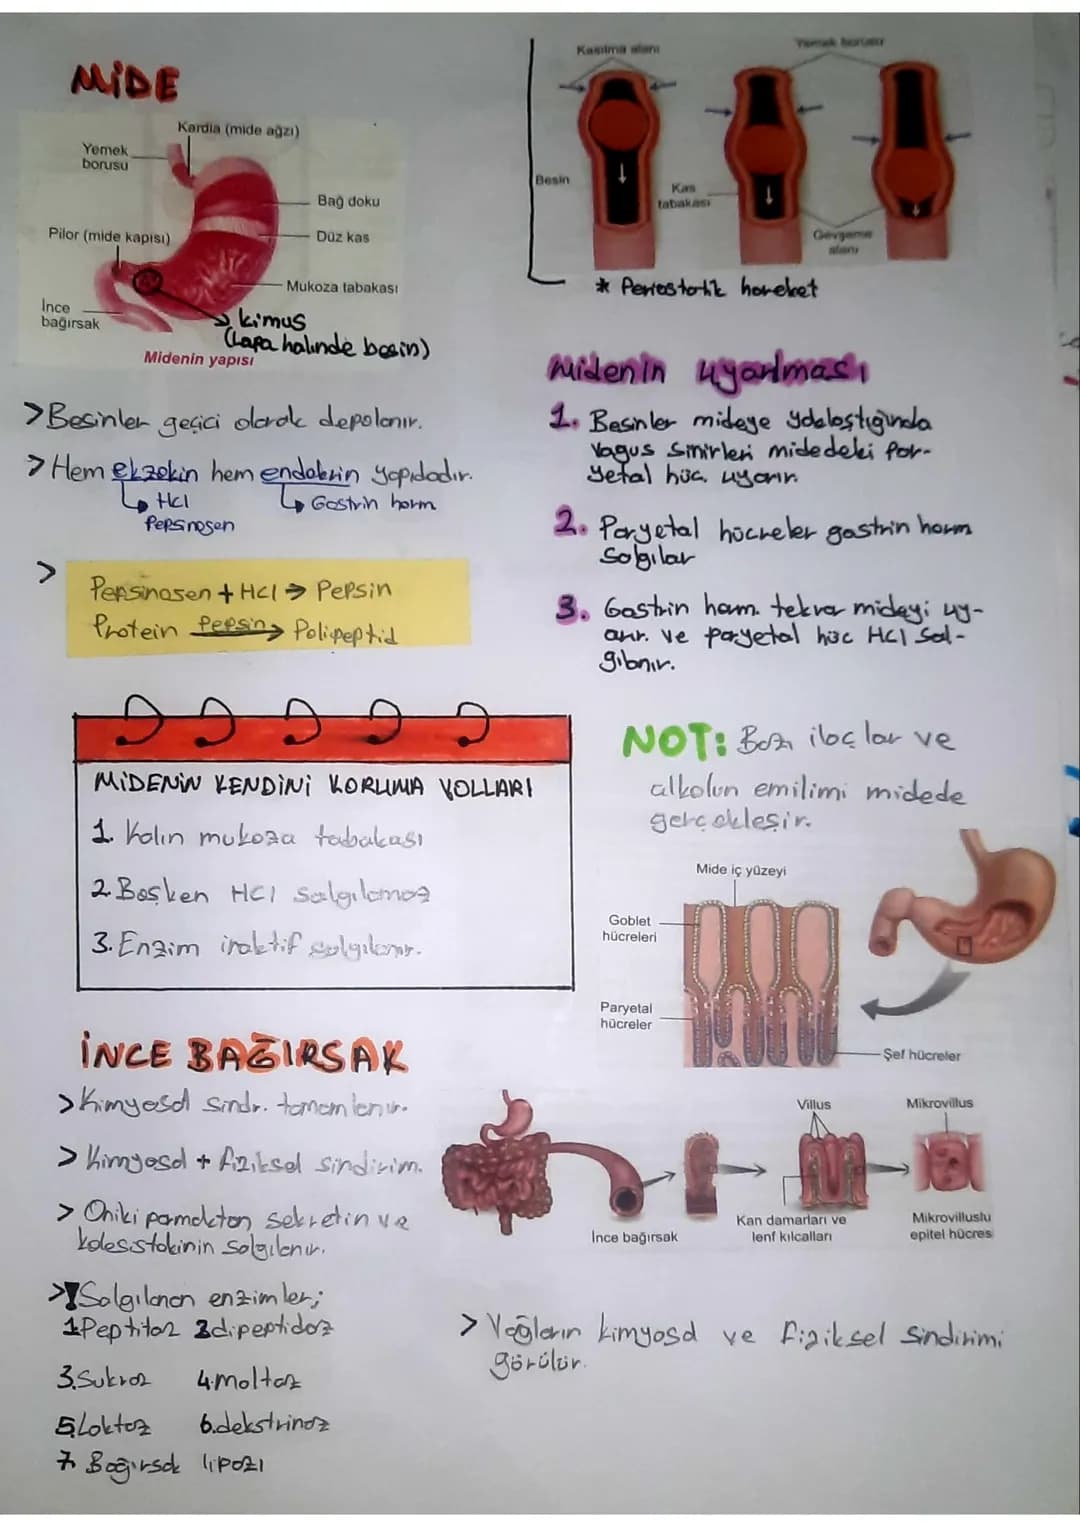 MİDE
Kardia (mide ağzı)
Yemek
borusu
Bağ doku
Pilor (mide kapısı)
Düz kas
Mukoza tabakası
İnce
bağırsak
kimus
(Lapa halinde besin)
Midenin yapısı
Kasılma alanı
Yemek borusu
Besin
Kas
tabakası
Gevşeme
alanı
* Peristortik hareket
>Besinler geçici olarak depolanır.
>Hem ekzokin hem endokrin yapıdadır.
HCl
Gastrin horm
Pepsinojen
>
Pepsinojen + HCl → Pepsin
Protein Pepsin → Polipeptid
Midenin uyarılması
1. Besinler mideye yaklaştığında
vagus sinirleri midedeki par-
yetal hüc. uyarır.
2. Paryetal hücreler gastrin horm
salgılar
3. Gastrin horm. tekrar mideyi uy-
arır. ve paryetal hüc HCl sal-
gılanır.
MİDENİN KENDİNİ KORUMA YOLLARI
1. Kalın mukoza tabakası
2. Boşken HCl salgılamaz
3. Enzim inaktif salgılanır.
NOT: Bazı ilaçlar ve
alkolün emilimi midede
gerçekleşir.
Mide iç yüzeyi
Goblet
hücreleri
Paryetal
hücreler
Şef hücreler
İNCE BAĞIRSAK
>Kimyasal sindr. tamamlanır.
> Kimyasal + fiziksel sindirim.
> Oniki parmaktan sekretin ve
kolesistokinin salgılanır.
>! Salgılanan enzimler;
1.Peptitaz 2.dipeptidaz
3.Sukraz 4.maltaz
5.Laktaz 6.dekstrinaz
7. Bağırsak lipazı
Villus
Mikrovillus
İnce bağırsak
Kan damarları ve
lenf kılcalları
Mikrovilluslu
epitel hücres
> Yağların kimyasal ve fiziksel sindirimi
görülür.